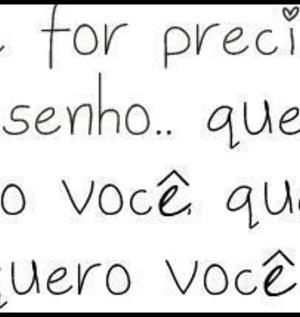 for preci
senho.. que
o você, qu
quero você